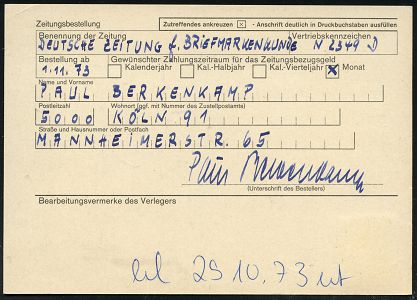 Zeitungsbestellung Zutreffendes ankreuzen ☒ - Anschrift deutlich in Druckbuchstaben ausfüllen
Benennung der Zeitung Vertriebskennzeichen
DEUTSCHE ZEITUNG f. BRIEFMARKENKUNDE N 2349 D
Bestellung ab Gewünschter Zahlungszeitraum für das Zeitungsbezugsgeld
1.11.73 Kalenderjahr Kal.-Halbjahr Kal.-Vierteljahr ☒ Monat
Name und Vorname
PAUL BERKENKAMP
Postleitzahl Wohnort (ggf. mit Nummer des Zustellpostamts)
5000 KÖLN 91
Straße und Hausnummer oder Postfach
MANNHEIMERSTR. 65
Paul Berkenkamp
(Unterschrift des Bestellers)
Bearbeitungsvermerke des Verlegers
29 10.73